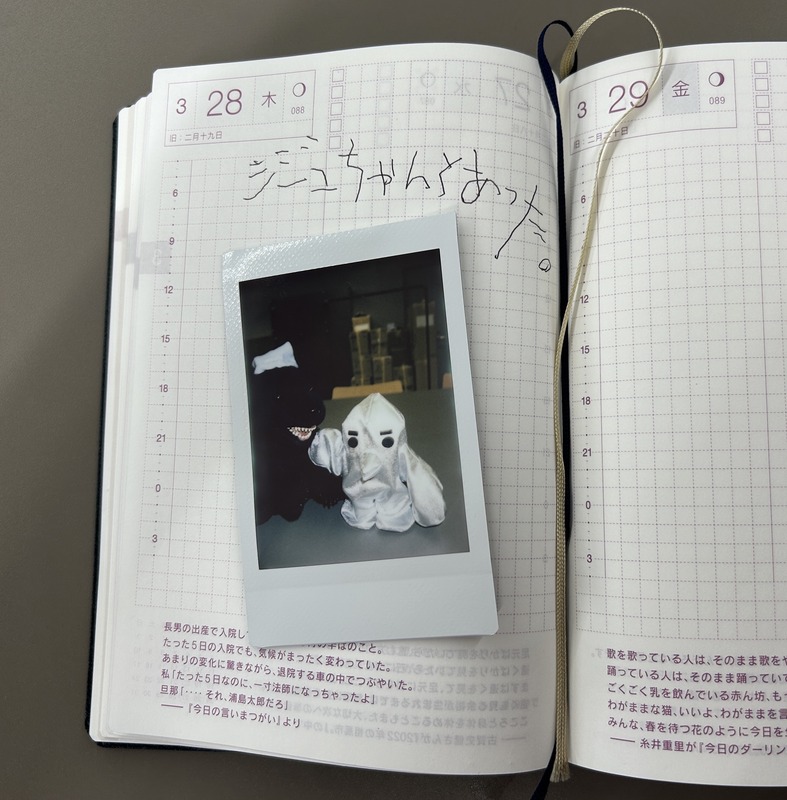 3 28 木 088
旧：二月十九日
ジジュちゃんとあった。
6
9
12
15
18
21
0
3
長男の出産で入院し
のこと。
たった5日の入院でも、気候がまったく変わっていた。
あまりの変化に驚きながら、退院する車の中でつぶやいた。
私「たった5日なのに、一寸法師になっちゃったよ」
旦那「‥‥ それ、浦島太郎だろ」
──『今日の言いまつがい』より
3 29 金 089
旧：二月二十日
12
15
18
21
0
3
歌を歌っている人は、そのまま歌を
踊っている人は、そのまま踊ってい
ごくごく乳を飲んでいる赤ん坊、も
わがままな猫、いいよ、わがままを
みんな、春を待つ花のように今日を
── 糸井重里が『今日のダーリン